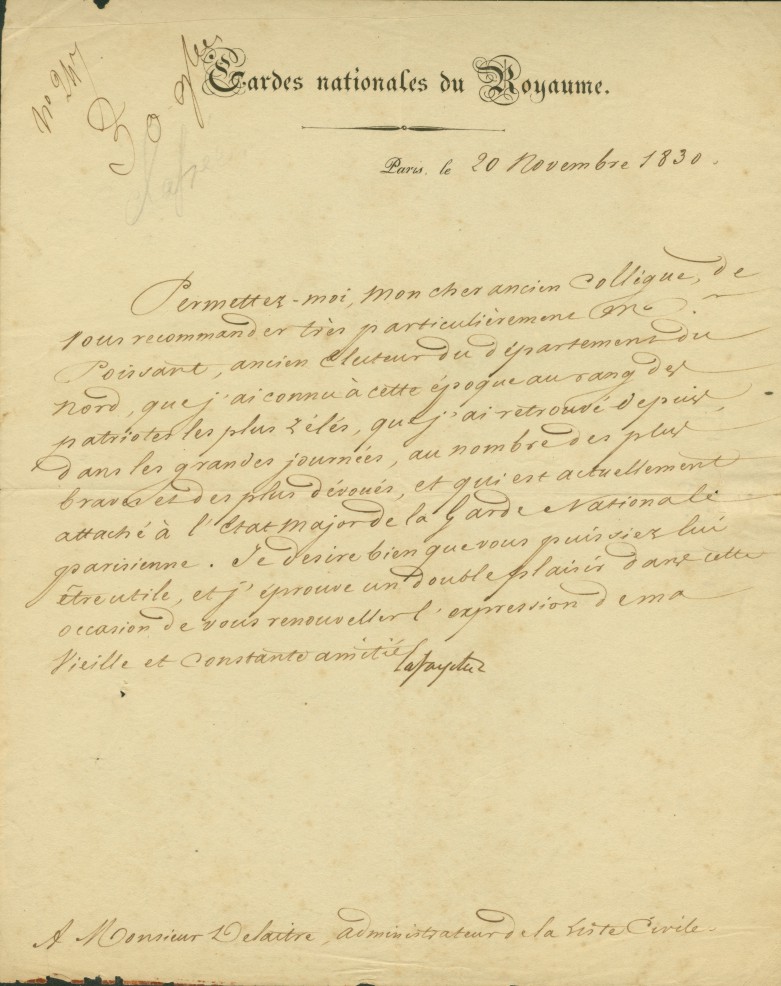 No 247
30 9bre
Gardes nationales du Royaume.
Paris, le 20 Novembre 1830.
Permettez-moi, mon cher ancien Collègue, de
vous recommander très particulièrement Mr
Poissant, ancien Electeur du département du
Nord, que j'ai connu à cette époque au rang des
patriotes les plus zélés, que j'ai retrouvé depuis,
dans les grandes journées, au nombre des plus
braves et des plus dévoués, et qui est actuellement
attaché à l'Etat major de la Garde Nationale
parisienne. Je desire bien que vous puissiez lui
être utile, et j'éprouve un double plaisir dans cette
occasion de vous renouveller l'expression de ma
vieille et constante amitié
Lafayette
A Monsieur Delaitre, administrateur de la Liste Civile.